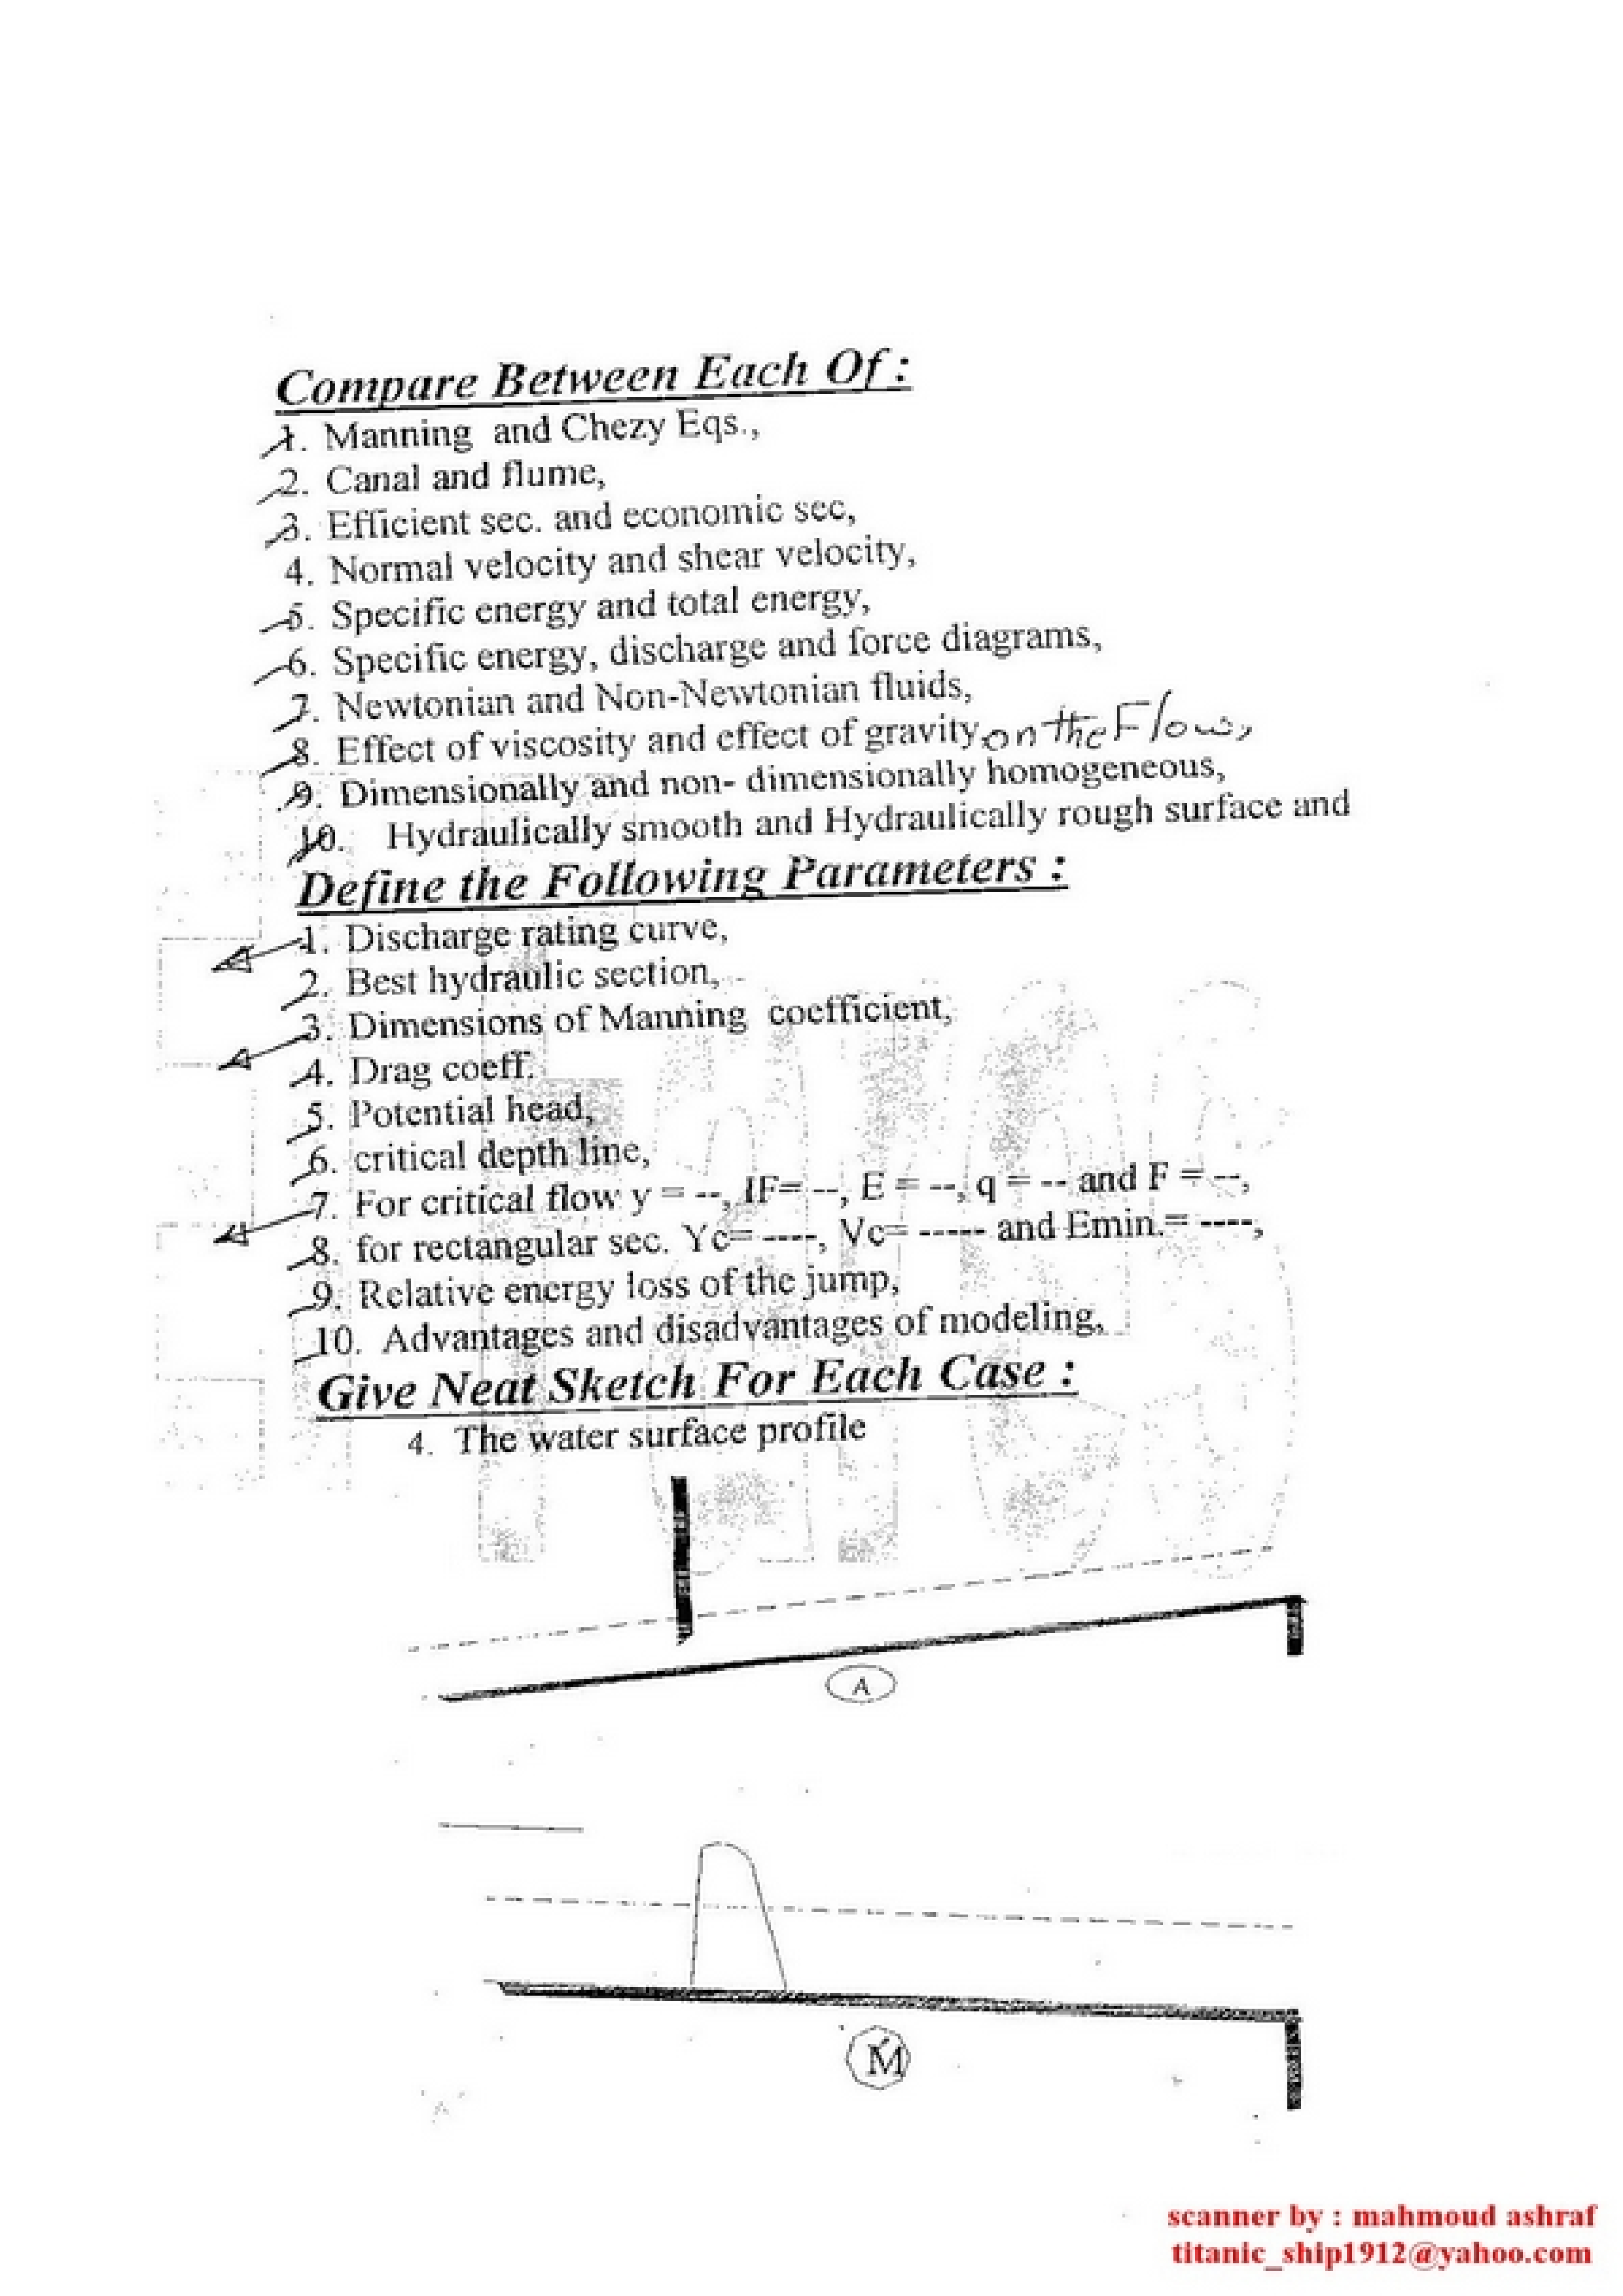 Compare Between Each Of :
1. Manning and Chezy Eqs.,
2. Canal and flume,
3. Efficient sec. and economic sec,
4. Normal velocity and shear velocity,
5. Specific energy and total energy,
6. Specific energy, discharge and force diagrams,
7. Newtonian and Non-Newtonian fluids,
8. Effect of viscosity and effect of gravity on the Flow,
9. Dimensionally and non- dimensionally homogeneous,
10. Hydraulically smooth and Hydraulically rough surface and
Define the Following Parameters :
1. Discharge rating curve,
2. Best hydraulic section,
3. Dimensions of Manning coefficient,
4. Drag coeff.
5. Potential head,
6. critical depth line,
7. For critical flow y = --, IF= --, E = --, q = -- and F = --,
8. for rectangular sec. Yc= ----, Vc= ----- and Emin.= ----,
9. Relative energy loss of the jump,
10. Advantages and disadvantages of modeling,
Give Neat Sketch For Each Case :
4. The water surface profile
A
M
scanner by : mahmoud ashraf
titanic_ship1912@yahoo.com